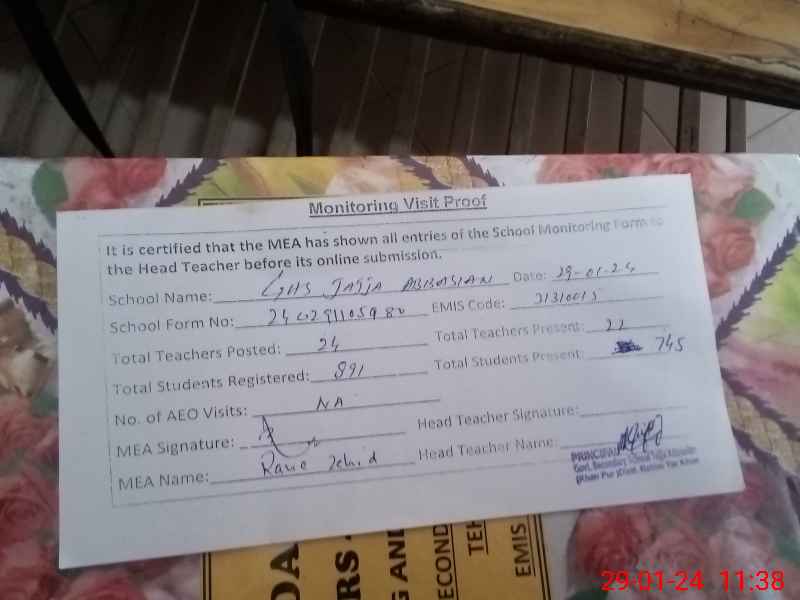 Monitoring Visit Proof
It is certified that the MEA has shown all entries of the School Monitoring Form to
the Head Teacher before its online submission.
School Name: GHS JAJJA ABBASIAN Date: 29-01-24
School Form No: EMIS Code: 31310015
Total Teachers Posted: 24 Total Teachers Present: 22
Total Students Registered: 891 Total Students Present: 745
No. of AEO Visits: NA
MEA Signature: Head Teacher Signature:
MEA Name: Head Teacher Name:
PRINCIPAL
Govt. Secondary School Jajja Abbasian
(Khan Pur) Distt. Rahim Yar Khan
DA
RS
G AND
SECOND
TEH
EMIS
29-01-24 11:38